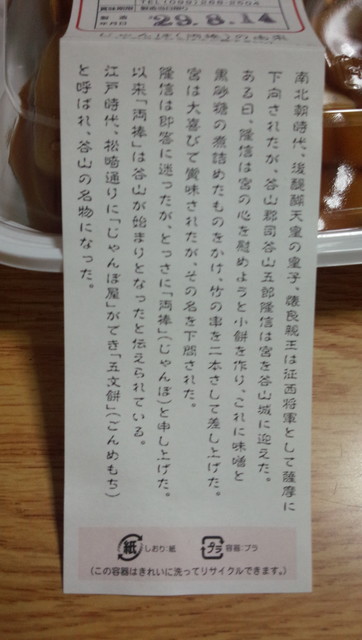 TEL(099)268-2504
製造
年月日
29.8.14
南北朝時代、後醍醐天皇の皇子、懐良親王は征西将軍として薩摩に
下向されたが、谷山郡司谷山五郎隆信は宮を谷山城に迎えた。
ある日、隆信は宮の心を慰めようと小餅を作り、これに味噌と
黒砂糖の煮詰めたものをかけ、竹の串を二本さして差し上げた。
宮は大喜びで賞味されたが、その名を下問された。
隆信は即答に迷ったが、とっさに「両棒」(じゃんぼ)と申し上げた。
以来「両棒」は谷山が始まりとなったと伝えられている。
江戸時代、松崎通りに「じゃんぼ屋」ができ「五文餅」(ごんめもち)
と呼ばれ、谷山の名物になった。
紙 しおり:紙
プラ 容器:プラ
(この容器はきれいに洗ってリサイクルできます。)